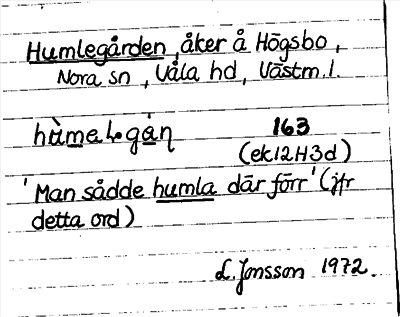 Humlegården, åker å Högsbo,
Nora sn, Våla hd, Västm.l.
hùmelgán 163
(ek12H3d)
'Man sådde humla där förr' (jfr
detta ord)
L. Jonsson 1972.